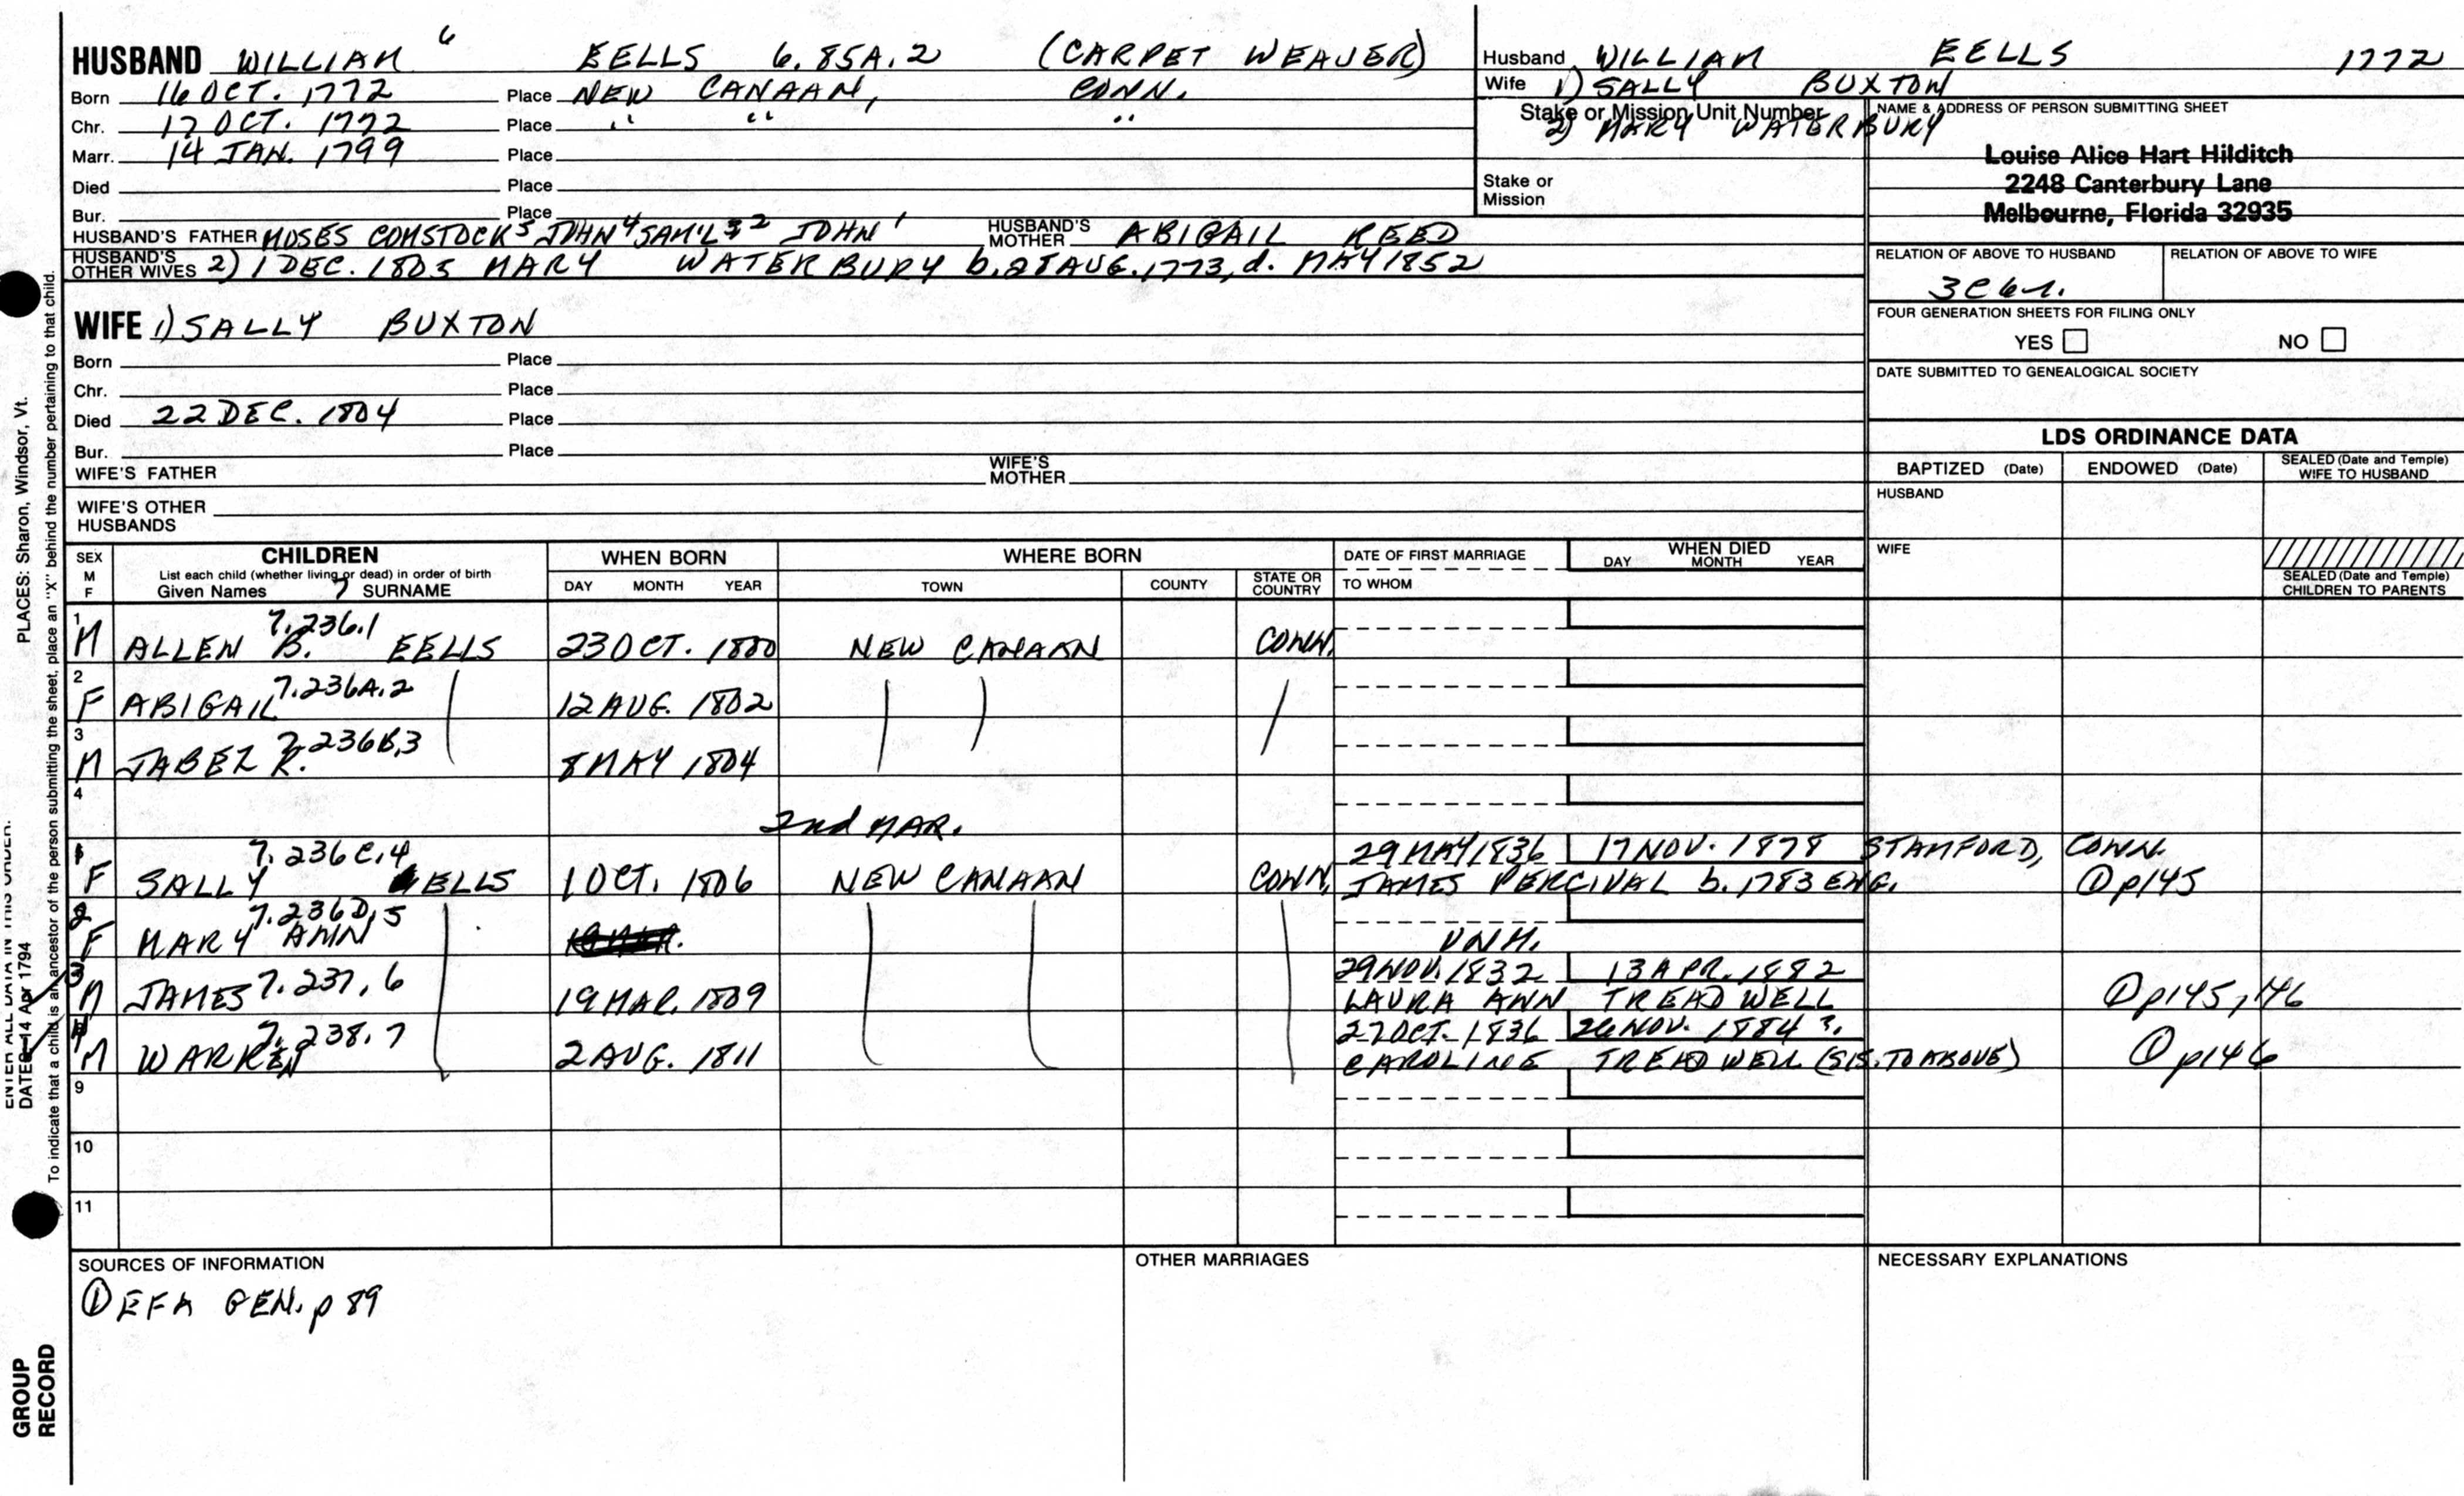 HUSBAND WILLIAM 6 EELLS 6.85A.2 (CARPET WEAVER)
Born 16 OCT. 1772 Place NEW CANAAN, CONN.
Chr. 17 OCT. 1772 Place " " "
Marr. 14 JAN. 1799 Place
Died Place
Bur. Place
HUSBAND'S FATHER MOSES COMSTOCK 5 JOHN 4 SAM'L 3 2 JOHN 1 HUSBAND'S MOTHER ABIGAIL REED
HUSBAND'S OTHER WIVES 2) 1 DEC. 1805 MARY WATERBURY b. 28 AUG. 1773, d. MAY 1852
Husband WILLIAM EELLS 1772
Wife 1) SALLY BUXTON
Stake or Mission Unit Number
2) MARY WATERBURY
Stake or
Mission
NAME & ADDRESS OF PERSON SUBMITTING SHEET
Louise Alice Hart Hilditch
2248 Canterbury Lane
Melbourne, Florida 32935
RELATION OF ABOVE TO HUSBAND RELATION OF ABOVE TO WIFE
3C6r.
FOUR GENERATION SHEETS FOR FILING ONLY
YES NO
DATE SUBMITTED TO GENEALOGICAL SOCIETY
WIFE 1) SALLY BUXTON
Born Place
Chr. Place
Died 22 DEC. 1804 Place
Bur. Place
WIFE'S FATHER WIFE'S MOTHER
WIFE'S OTHER
HUSBANDS
LDS ORDINANCE DATA
BAPTIZED (Date) ENDOWED (Date) SEALED (Date and Temple) WIFE TO HUSBAND
HUSBAND
WIFE
SEALED (Date and Temple) CHILDREN TO PARENTS
SEX M F CHILDREN WHEN BORN WHERE BORN DATE OF FIRST MARRIAGE WHEN DIED
List each child (whether living or dead) in order of birth
Given Names 7 SURNAME DAY MONTH YEAR TOWN COUNTY STATE OR COUNTRY TO WHOM DAY MONTH YEAR
1 7.236.1
M ALLEN B. EELLS 23 OCT. 1800 NEW CANAAN CONN.
2 7.236A.2
F ABIGAIL 12 AUG. 1802
3 7.236B.3
M JABEZ R. 8 MAY 1804
4
2nd MAR.
7.236C.4 29 MAY 1836 17 NOV. 1878 STAMFORD, CONN.
F SALLY EELLS 1 OCT. 1806 NEW CANAAN CONN. JAMES PERCIVAL b. 1783 ENG. ① p145
2 7.236D.5
F MARY ANN UNM.
3 29 NOV. 1832 13 APR. 1882
M JAMES 7.237.6 19 MAR. 1809 LAURA ANN TREADWELL ① p145, 146
4 7.238.7 27 OCT. 1836 26 NOV. 1884 ?.
M WARREN 2 AUG. 1811 CAROLINE TREADWELL (SIS. TO ABOVE) ① p146
9
10
11
SOURCES OF INFORMATION OTHER MARRIAGES NECESSARY EXPLANATIONS
① EFA GEN. p 89
PLACES: Sharon, Windsor, Vt.
To indicate that a child is an ancestor of the person submitting the sheet, place an "X" behind the number pertaining to that child.
ENTER ALL DATA IN THIS ORDER:
DATES: 14 Apr 1794
GROUP
RECORD